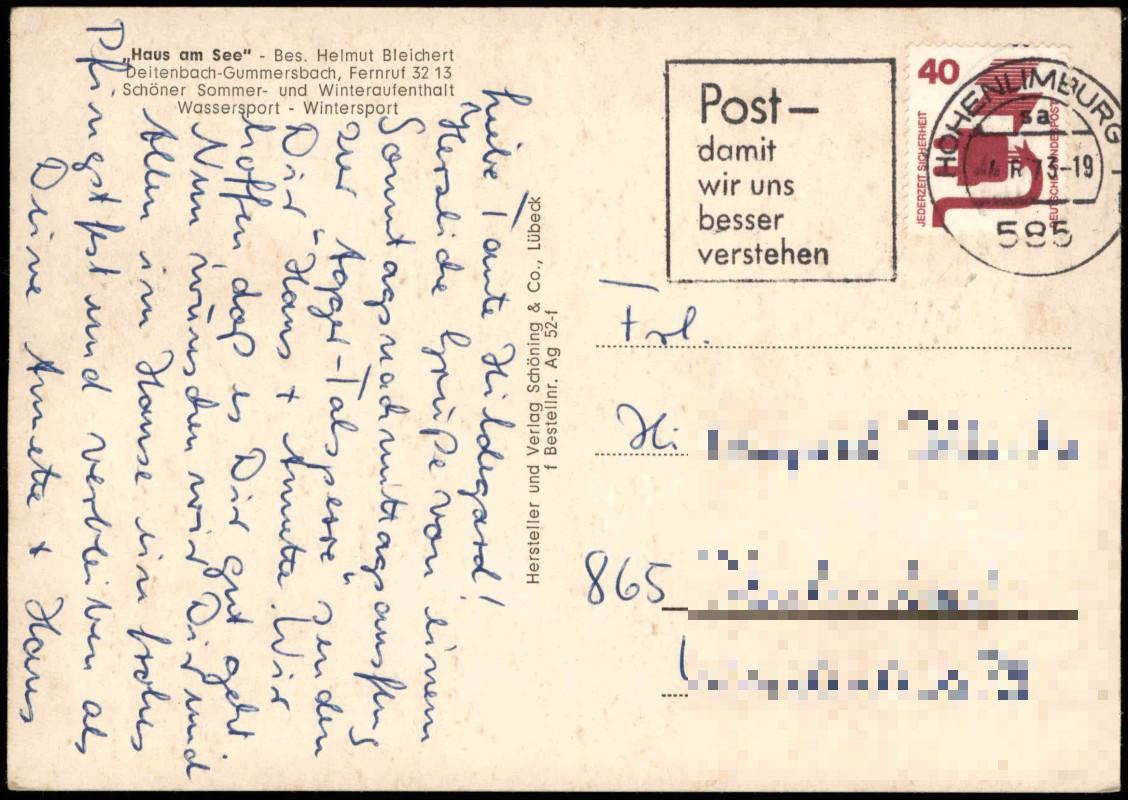 „Haus am See“ - Bes. Helmut Bleichert
Deitenbach-Gummersbach, Fernruf 32 13
Schöner Sommer- und Winteraufenthalt
Wassersport - Wintersport
Liebe Tante Hildegard!
Herzliche Grüße von einem
Sonntagsnachmittagsausflug
zur "Agger-Talsperre" senden
Dir Hans + Annette. Wir
hoffen daß es Dir gut geht.
Nun wünschen wir Dir und
Allen im Hause ein frohes
Pfingstfest und verbleiben als
Deine Annette + Hans
Hersteller und Verlag Schöning & Co., Lübeck
f Bestellnr. Ag 52-f
Post–
damit
wir uns
besser
verstehen
40
JEDERZEIT SICHERHEIT
DEUTSCHE BUNDESPOST
HOHENLIMBURG
sa
73-19
585
Frl.
Hi
865